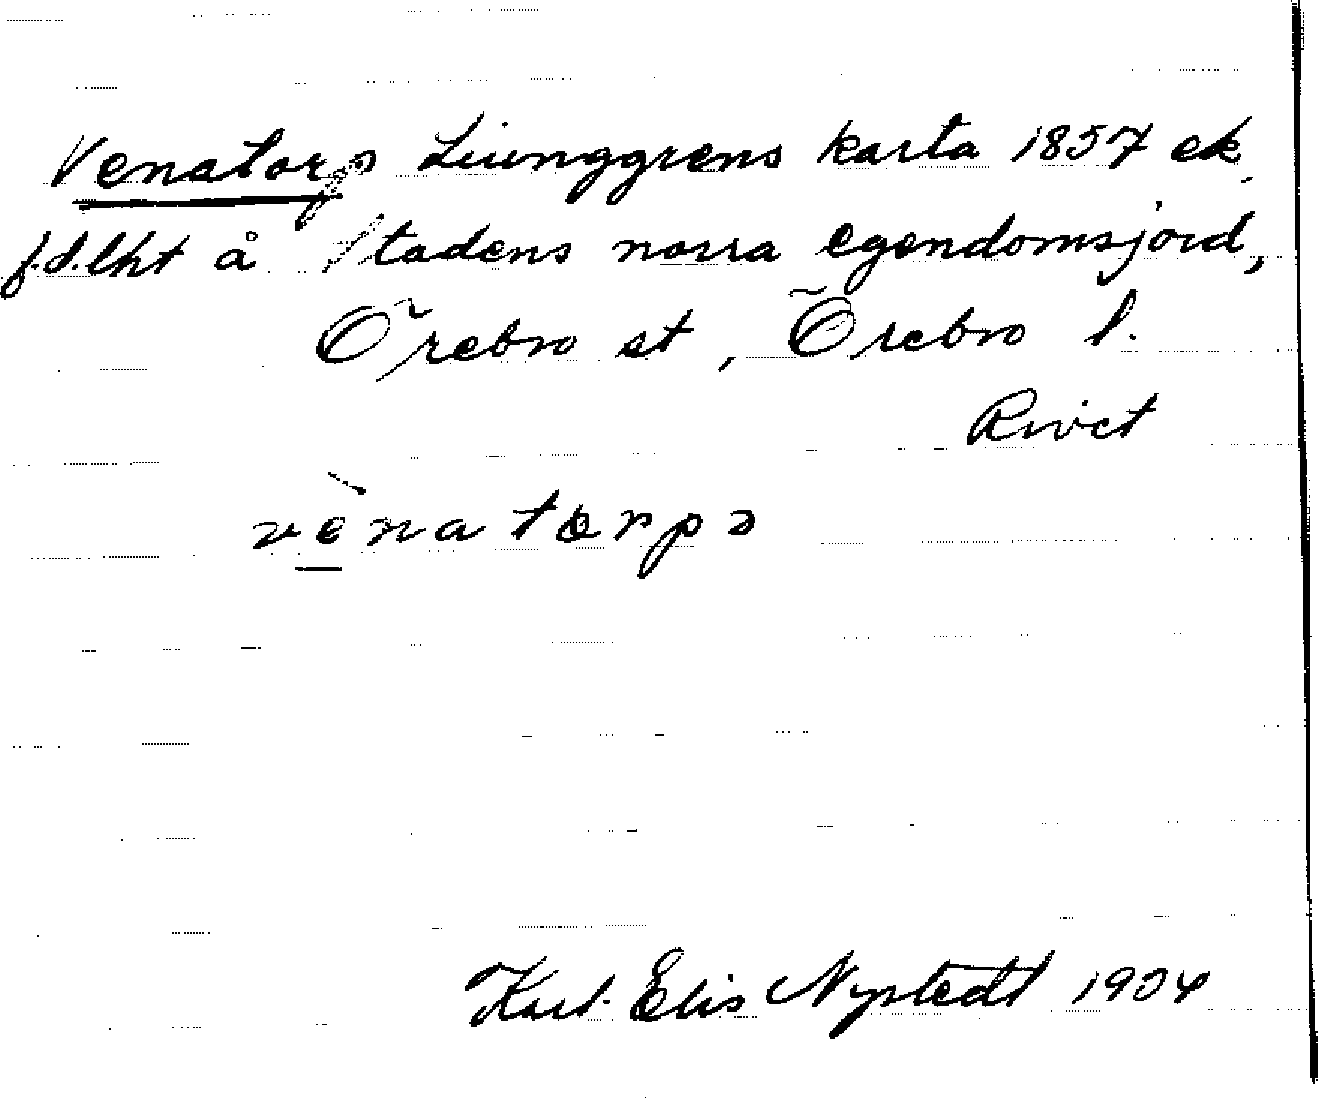 Venatorp Liunggrens karta 1857 ek
f.d.lht å Stadens norra egendomsjord,
Örebro st, Örebro l.
Rivet
vènatorpə
Karl-Elis Nystedt 1924